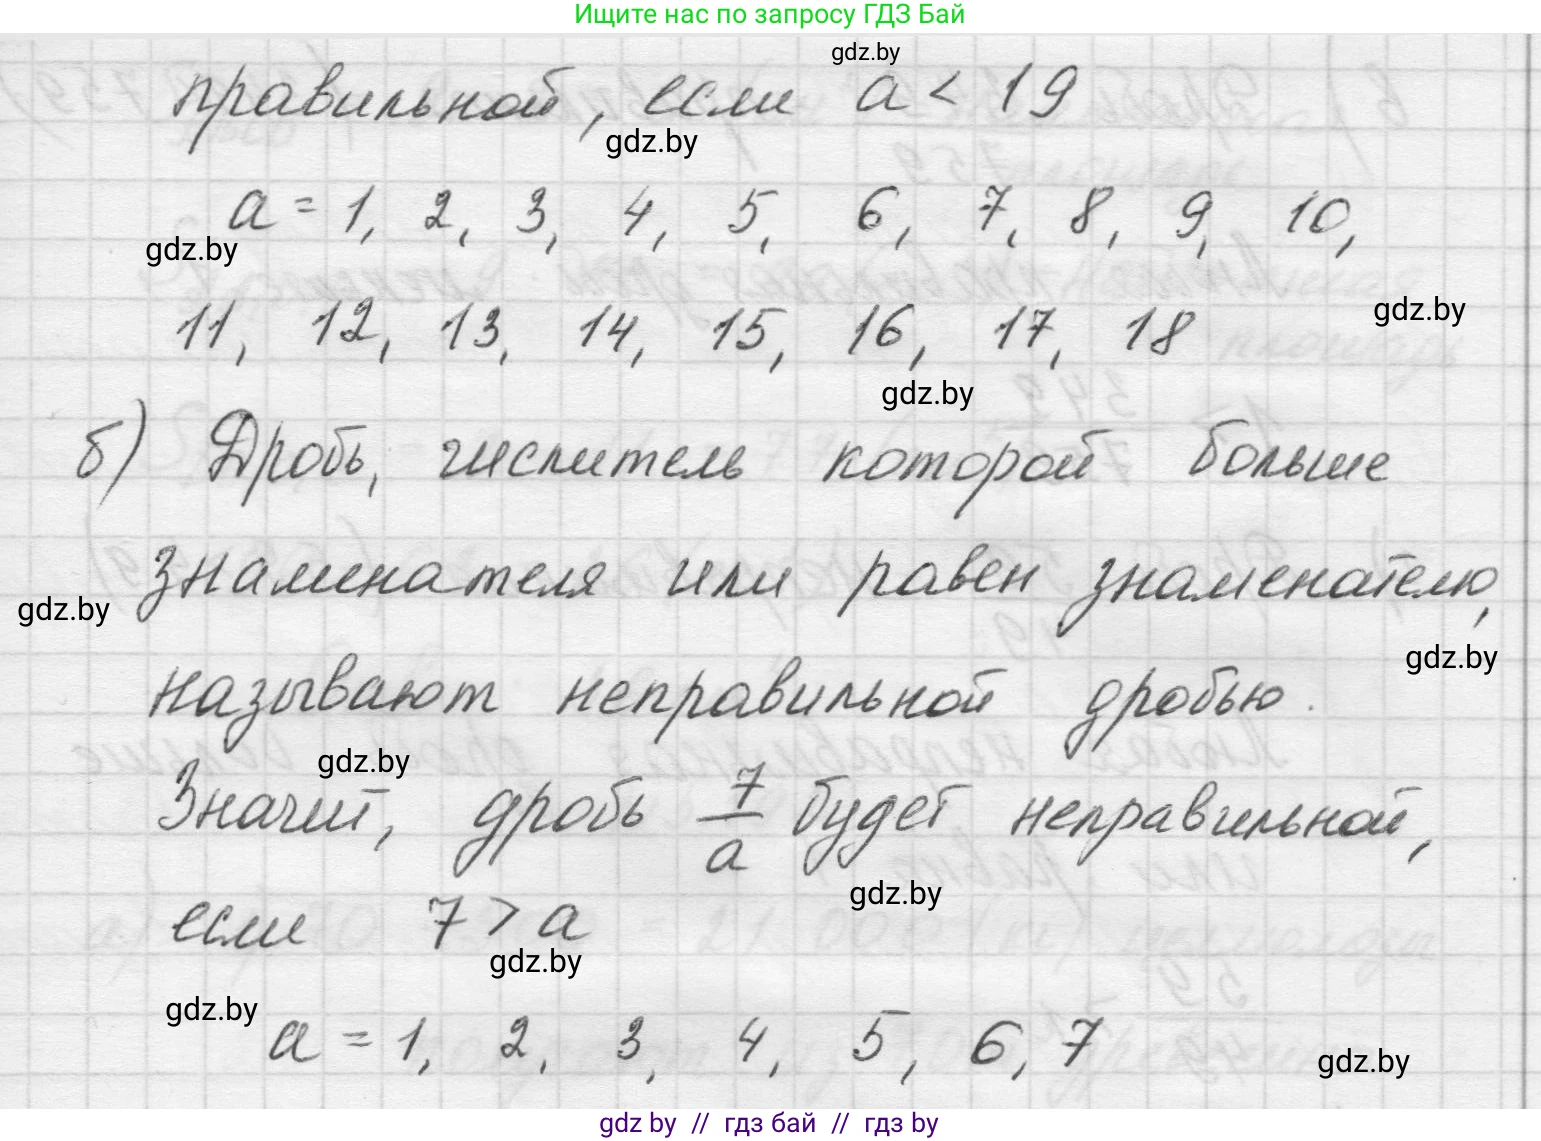 Ищите нас по запросу ГДЗ Бай
gdz.by
правильной, если a < 19
gdz.by
a = 1, 2, 3, 4, 5, 6, 7, 8, 9, 10,
gdz.by
11, 12, 13, 14, 15, 16, 17, 18
gdz.by
gdz.by
б) Дробь, числитель которой больше
знаменателя или равен знаменателю,
gdz.by
gdz.by
называют неправильной дробью.
gdz.by
Значит, дробь 7/a будет неправильной,
gdz.by
если 7 > a
gdz.by
gdz.by
a = 1, 2, 3, 4, 5, 6, 7
gdz.by
gdz by // гдз бай // гдз by